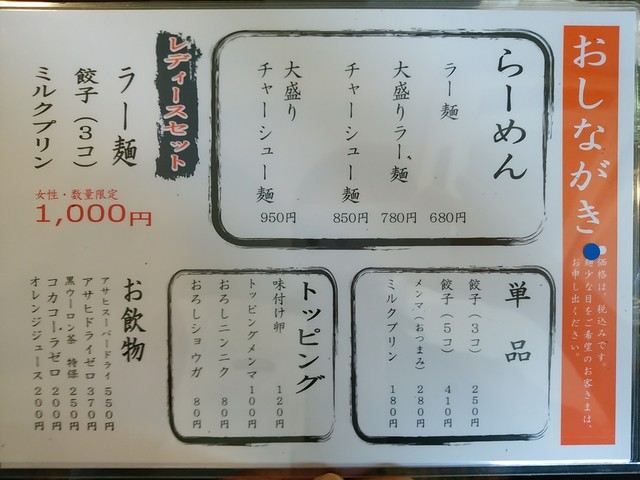 おしながき
価格は、税込みです。
麺少な目をご希望のお客さまは、
お申し出ください。
らーめん
ラー麺 680円
大盛りラー麺 780円
チャーシュー麺 850円
大盛り
チャーシュー麺 950円
レディースセット
ラー麺
餃子（3コ）
ミルクプリン
女性・数量限定
1,000円
単品
餃子（3コ） 250円
餃子（5コ） 410円
メンマ（おつまみ） 280円
ミルクプリン 180円
トッピング
味付け卵 120円
トッピングメンマ 100円
おろしニンニク 80円
おろしショウガ 80円
お飲物
アサヒスーパードライ 550円
アサヒドライゼロ 370円
黒ウーロン茶 特保 250円
コカコーラゼロ 200円
オレンジジュース 200円